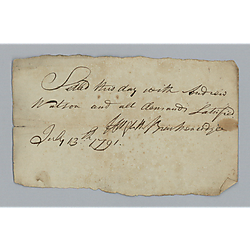 Settled this day with Andrew
Watson and all demands Satisfied
July 13th 1791.